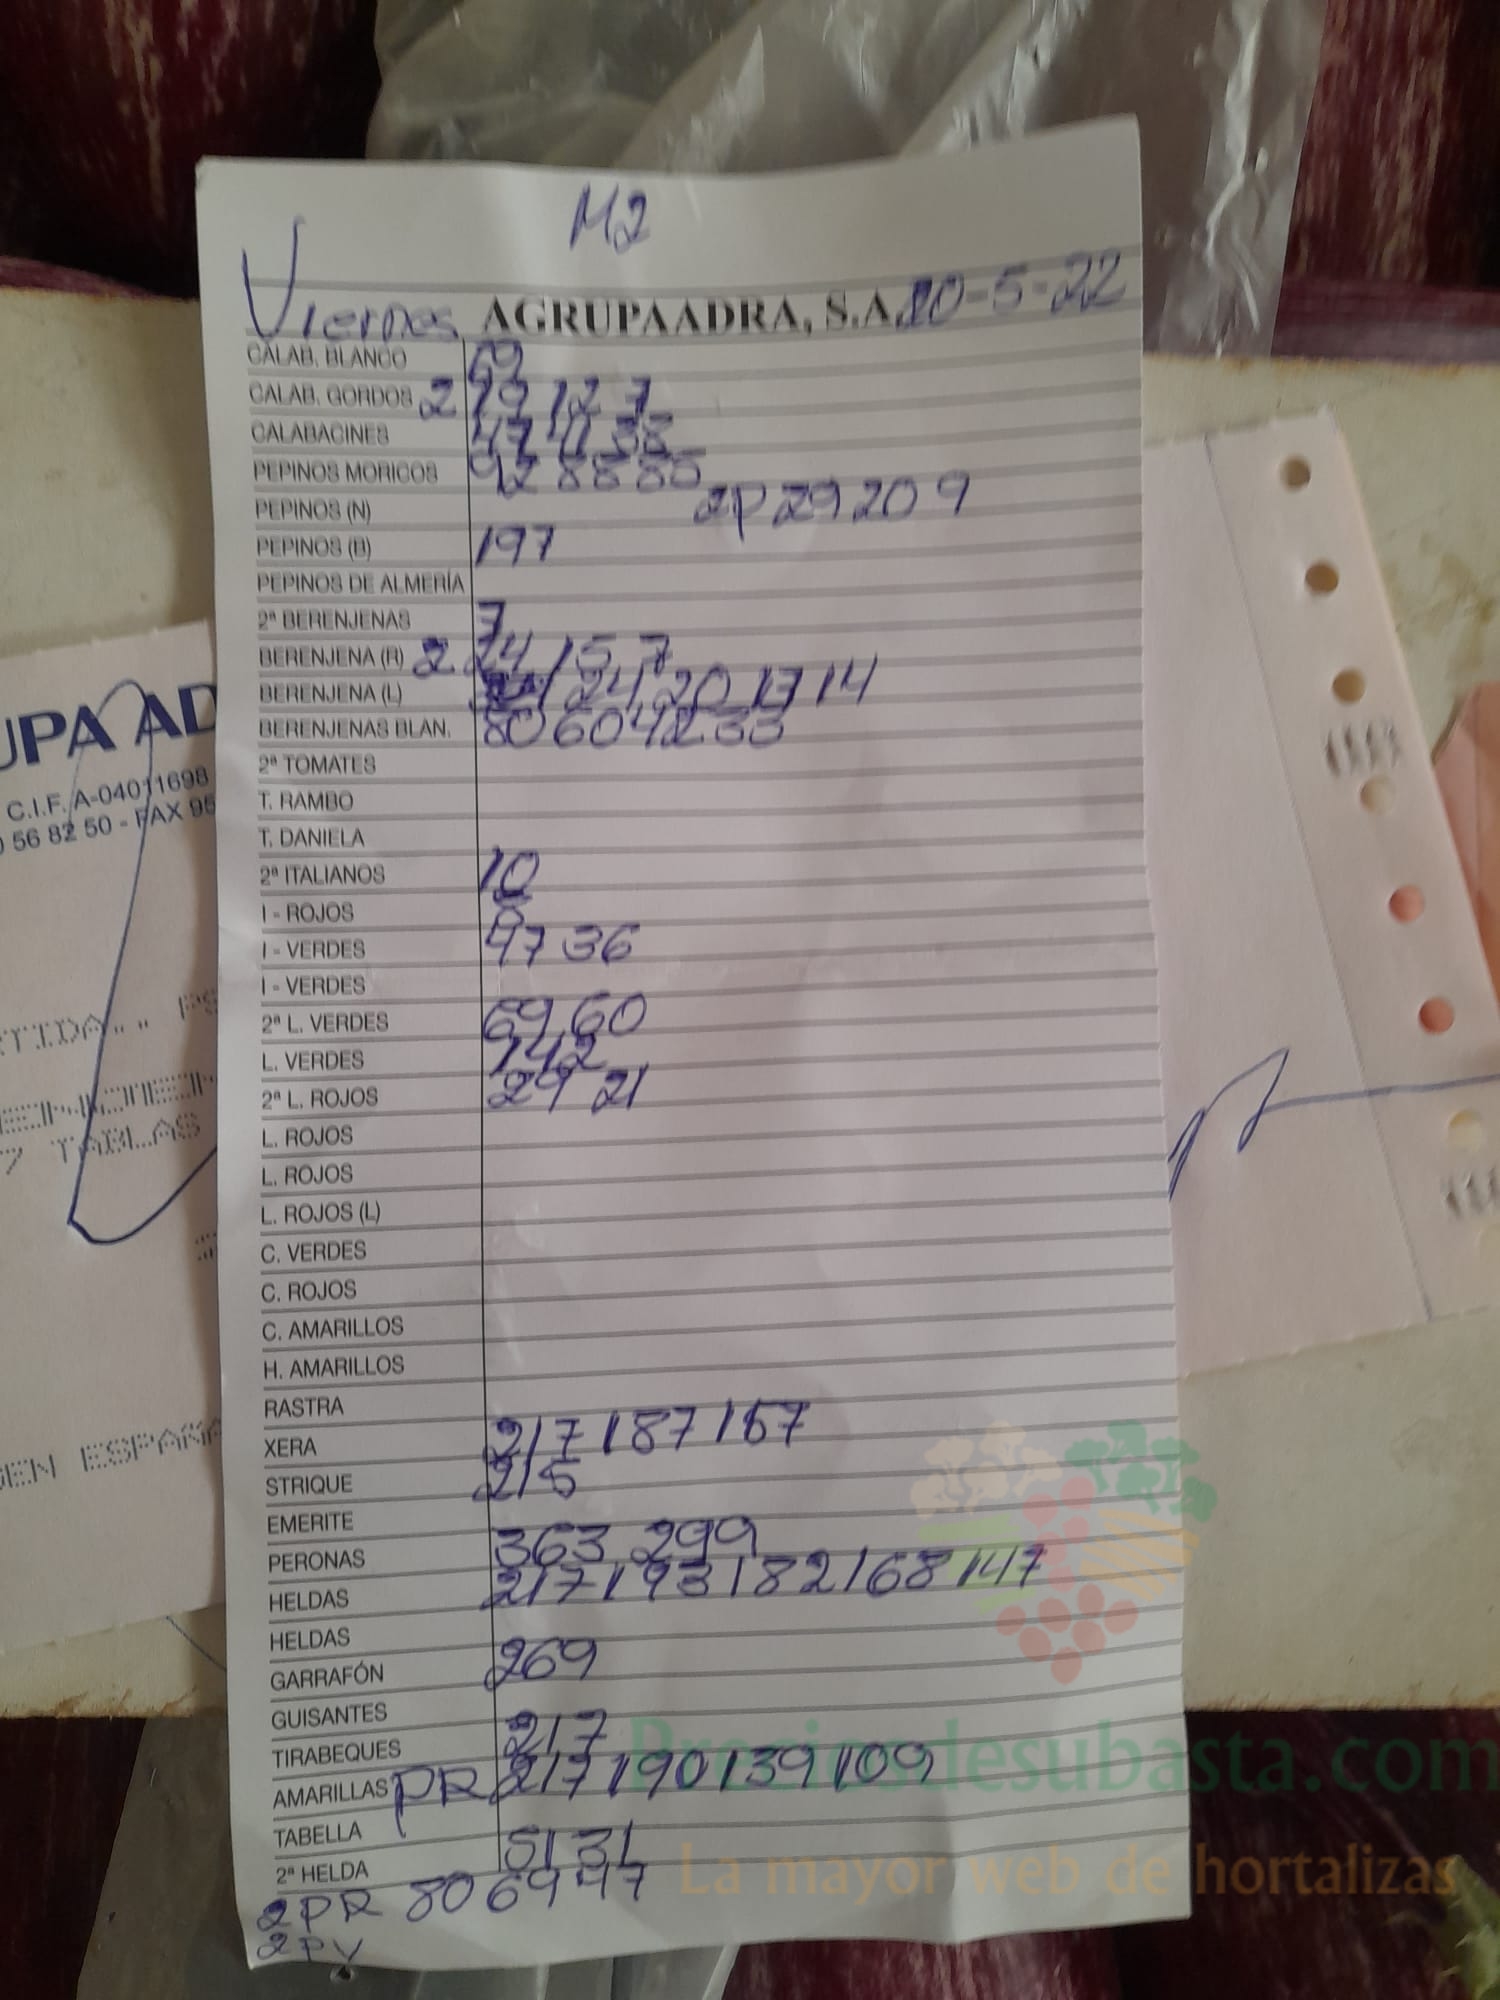 M2
Viernes AGRUPAADRA, S.A. 20-5-22
CALAB. BLANCO 69
CALAB. GORDOS 2 19 12 7
CALABACINES 47 41 38
PEPINOS MORICOS 92 88 80
PEPINOS (N) 2P 29 20 9
PEPINOS (B) 197
PEPINOS DE ALMERÍA
2ª BERENJENAS 7
BERENJENA (R) 2 24 15 7
BERENJENA (L) 24 20 17 14
BERENJENAS BLAN. 80 60 42 33
2ª TOMATES
T. RAMBO
T. DANIELA
2ª ITALIANOS 10
I - ROJOS 8
I - VERDES 47 36
I - VERDES
2ª L. VERDES 69 60
L. VERDES 142
2ª L. ROJOS 29 21
L. ROJOS
L. ROJOS
L. ROJOS (L)
C. VERDES
C. ROJOS
C. AMARILLOS
H. AMARILLOS
RASTRA
XERA 217 187 157
STRIQUE 215
EMERITE
PERONAS 363 299
HELDAS 217 193 182 168 147
HELDAS
GARRAFÓN 269
GUISANTES
TIRABEQUES 217
AMARILLAS PR 217 190 139 109
TABELLA
2ª HELDA 51 31
2PR 80 69 47
2PV
UPA AD
C.I.F. A-04011698
) 56 82 50 - FAX 95
RTIDA.. PS
7 TABLAS
GEN ESPAÑA
Preciosdesubasta.com
La mayor web de hortalizas